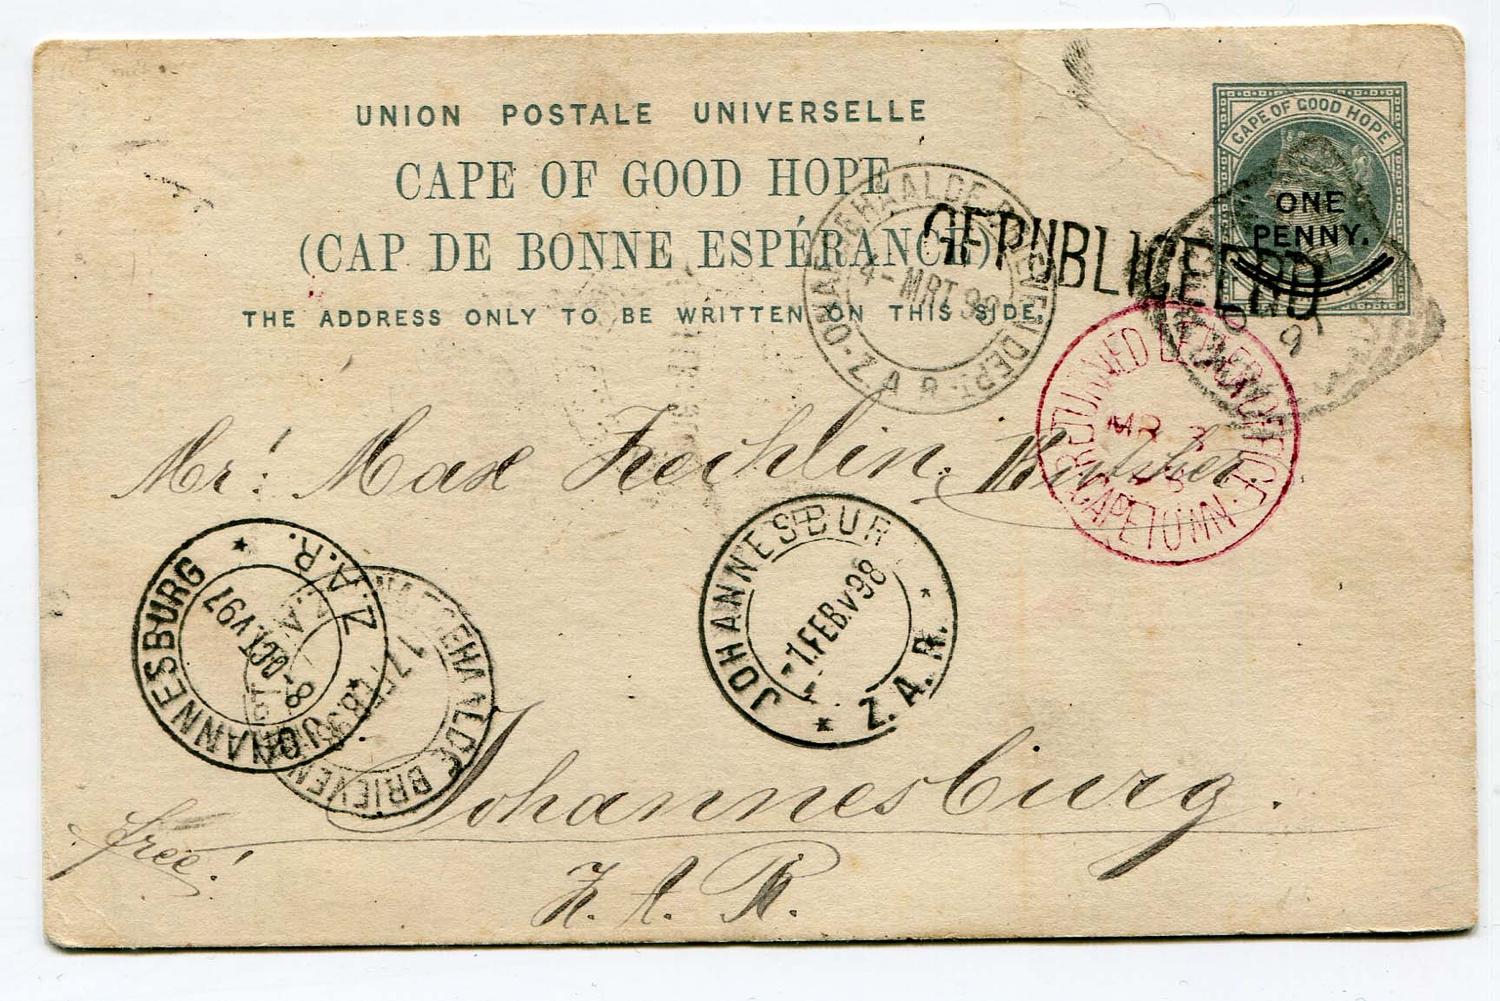 UNION POSTALE UNIVERSELLE
CAPE OF GOOD HOPE
(CAP DE BONNE ESPÉRANCE)
THE ADDRESS ONLY TO BE WRITTEN ON THIS SIDE.
CAPE OF GOOD HOPE
ONE
PENNY.
GEPUBLICEERD
ONAFGEHAALDE BRIEVEN DEPT. Z.A.R.
4-MRT 98
RETURNED LETTER OFFICE
MR 3
CAPETOWN
Mr. Max
JOHANNESBURG
Z.A.R.
8-OCT.V97
ONAFGEHAALDE BRIEVEN
17 FEB
JOHANNESBUR
-1.FEB.V98
Z.A.R.
Johannesburg.
Z. A. R.
free!